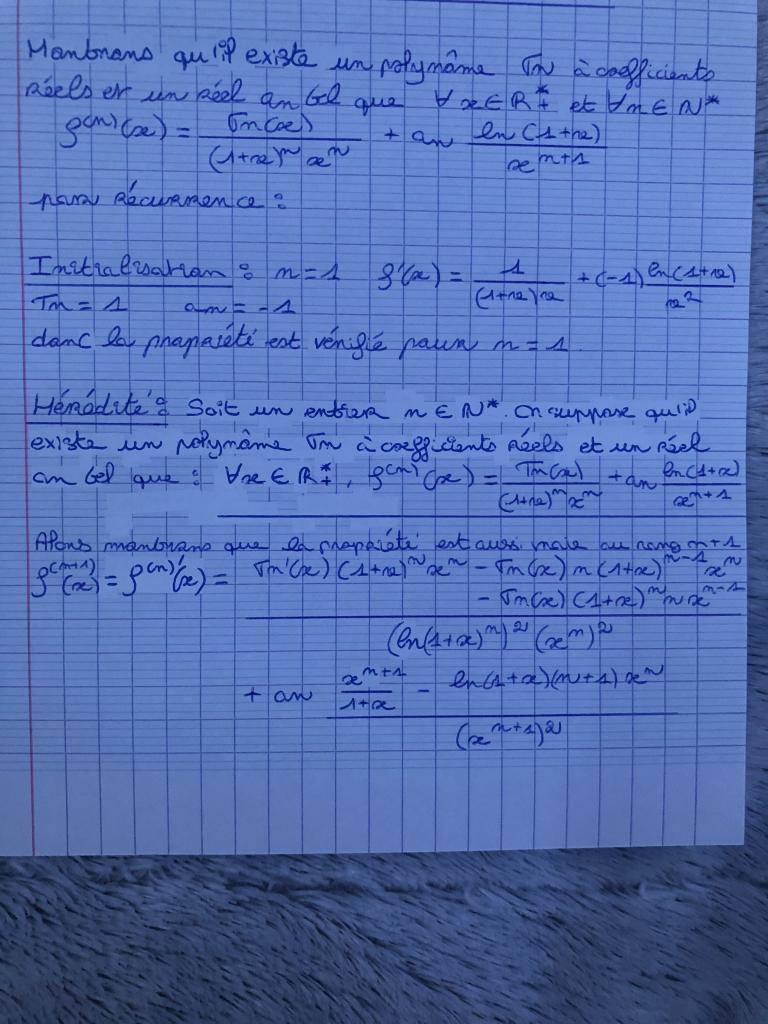 Montrons qu'il existe un polynôme Tn à coefficients
réels et un réel an tel que ∀x∈ℝ*₊ et ∀n∈ℕ*
f⁽ⁿ⁾(x) = Tn(x) / ((1+x)ⁿ xⁿ) + an ln(1+x) / xⁿ⁺¹
par récurrence :
Initialisation : n=1 f'(x) = 1 / ((1+x)x) + (-1) ln(1+x) / x²
Tn = 1 an = -1
donc la propriété est vérifié pour n = 1
Hérédité : Soit un entier n ∈ ℕ*. On suppose qu'il
existe un polynôme Tn à coefficients réels et un réel
an tel que : ∀x∈ℝ*₊, f⁽ⁿ⁾(x) = Tn(x) / ((1+x)ⁿxⁿ) + an ln(1+x) / xⁿ⁺¹
Alors montrons que la propriété est aussi vraie au rang n+1
f⁽ⁿ⁺¹⁾(x) = f⁽ⁿ⁾'(x) = Tn'(x)(1+x)ⁿxⁿ - Tn(x) n(1+x)ⁿ⁻¹xⁿ
- Tn(x)(1+x)ⁿnxⁿ⁻¹
(ln(1+x)ⁿ)² (xⁿ)²
+ an xⁿ⁺¹ / (1+x) - ln(1+x)(n+1)xⁿ
(xⁿ⁺¹)²